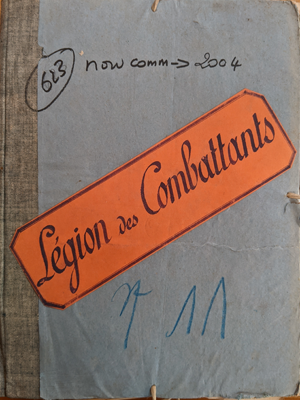 623
now comm-> 2004
Légion des Combattants
N 11